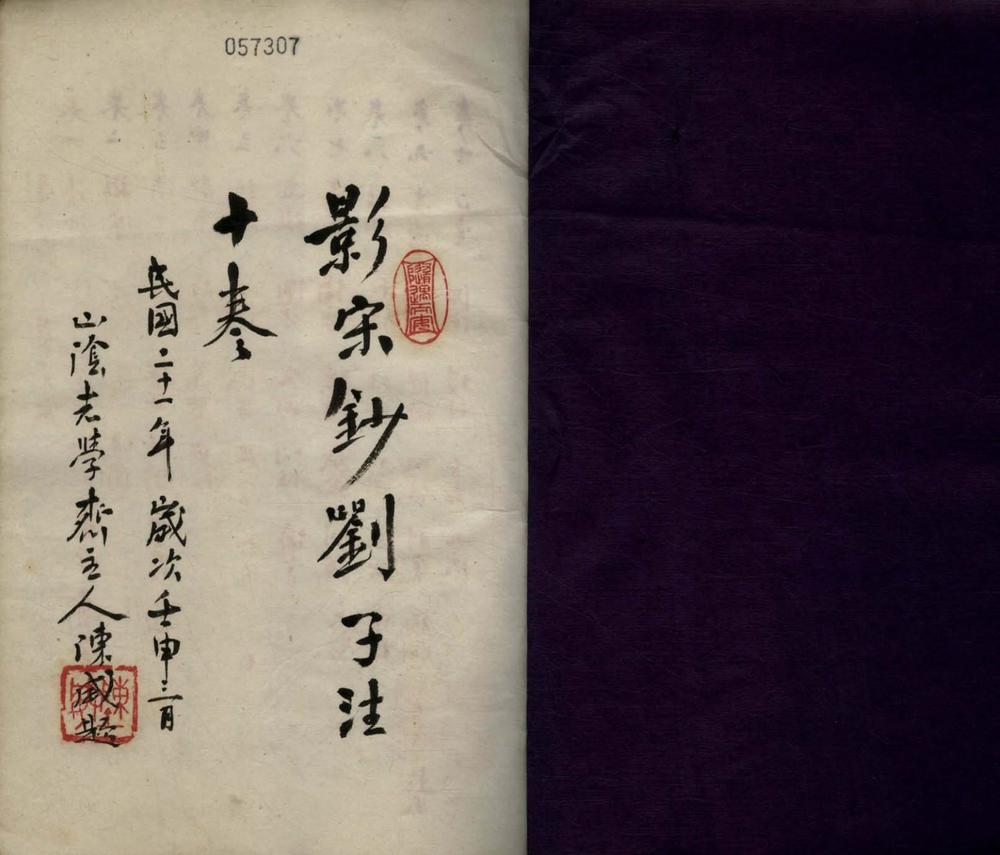 057307
影宋鈔劉子注
十卷
民國二十一年歲次壬申三月
山陰老學齋主人陳咸題